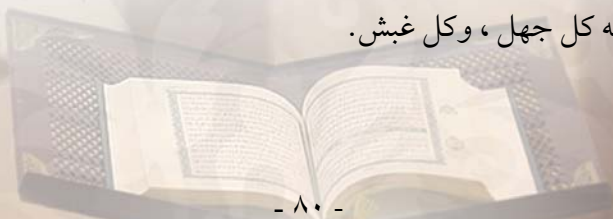 ه كل جهل ، وكل غبش.
- ٨٠ -